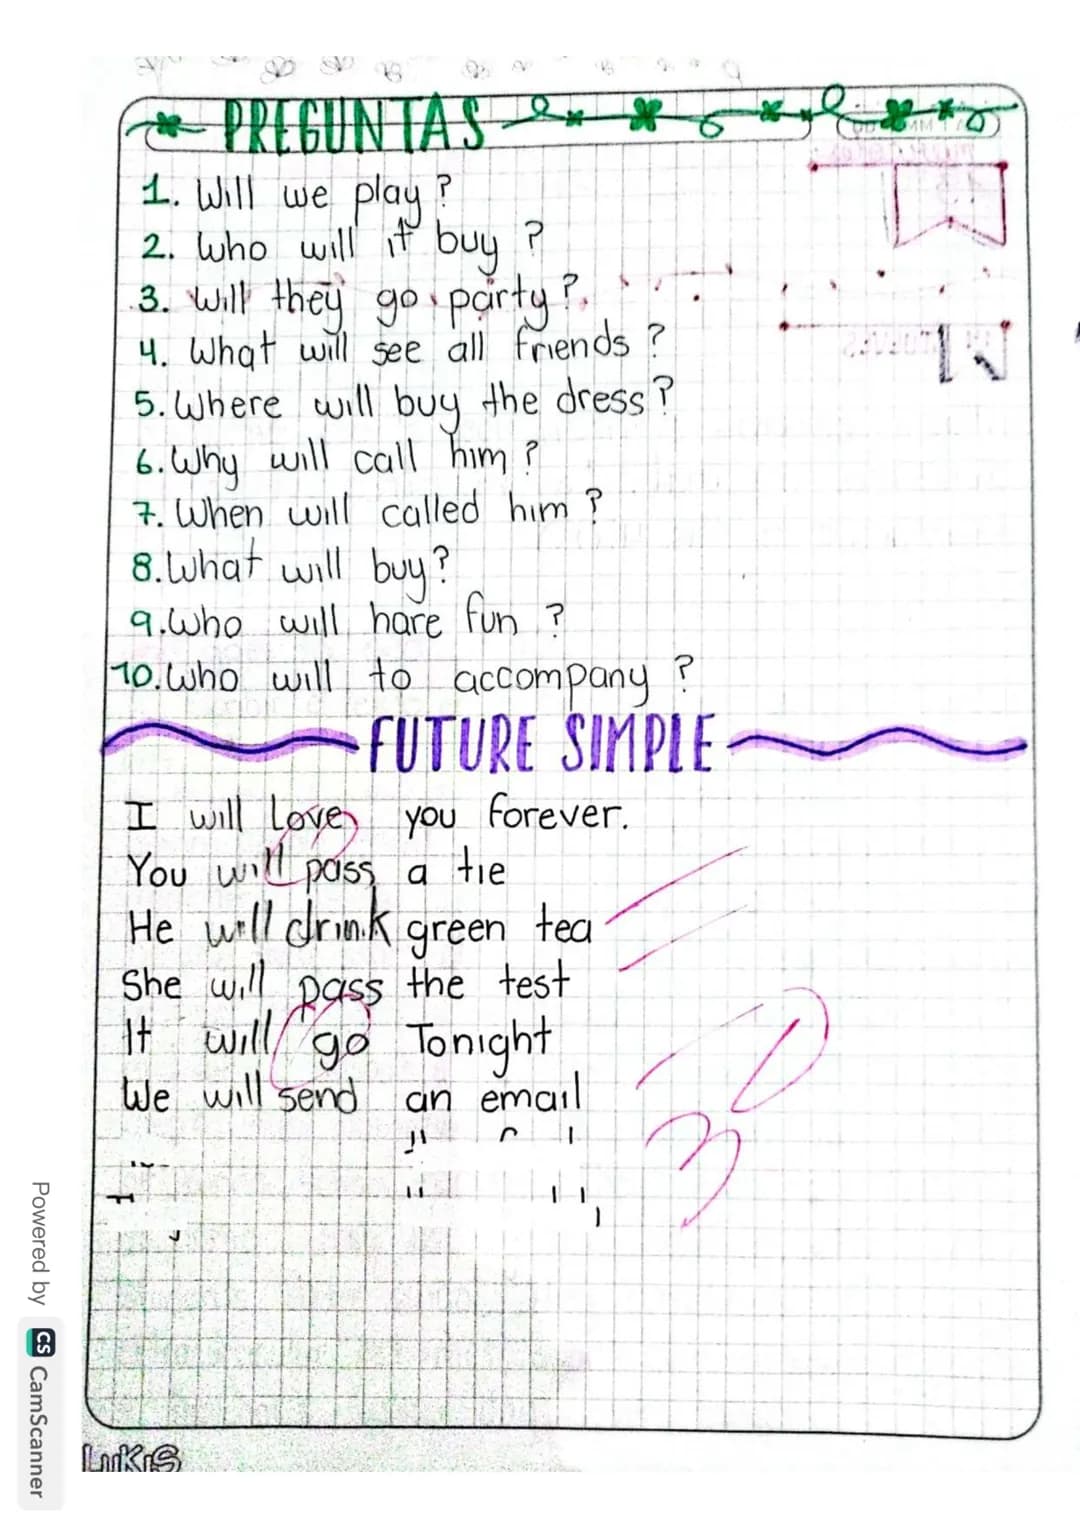 PREGUNTAS
1. Will we play?
2. Who will it buy?
3. Will they go party?
4. What will see all friends?
5. Where will buy the dress?
6. Why will call him?
7. When will called him?
8. What will buy?
9. Who will hare fun?
10. Who will to accompany?
FUTURE SIMPLE
I will Love you forever.
You will pass a tie
He will drink green tea
She will pass the test
It will go Tonight
We will send an email
Powered by CS CamScanner